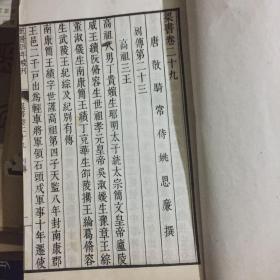 梁書卷二十九
唐散騎常侍姚思廉撰
列傳第二十三
高祖三王
高祖八男丁貴嬪生昭明太子統太宗簡文皇帝廬陵
威王續阮脩容生世祖孝元皇帝吳淑媛生豫章王綜
董淑儀生南康簡王績丁充華生邵陵攜王綸葛脩容
生武陵王紀綜及紀別有傳
南康簡王績字世謹高祖第四子天監八年封南康郡
王邑二千戶出為輕車將軍領石頭戍軍事十年遷使